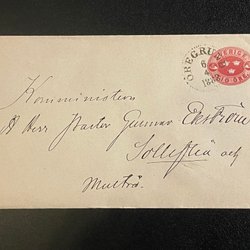 ÖREGRU
SVERIGE
TIO ÖRE
Komministern
Herr Pastor Gunnar Ekström
Sollefteå och
Multrå.